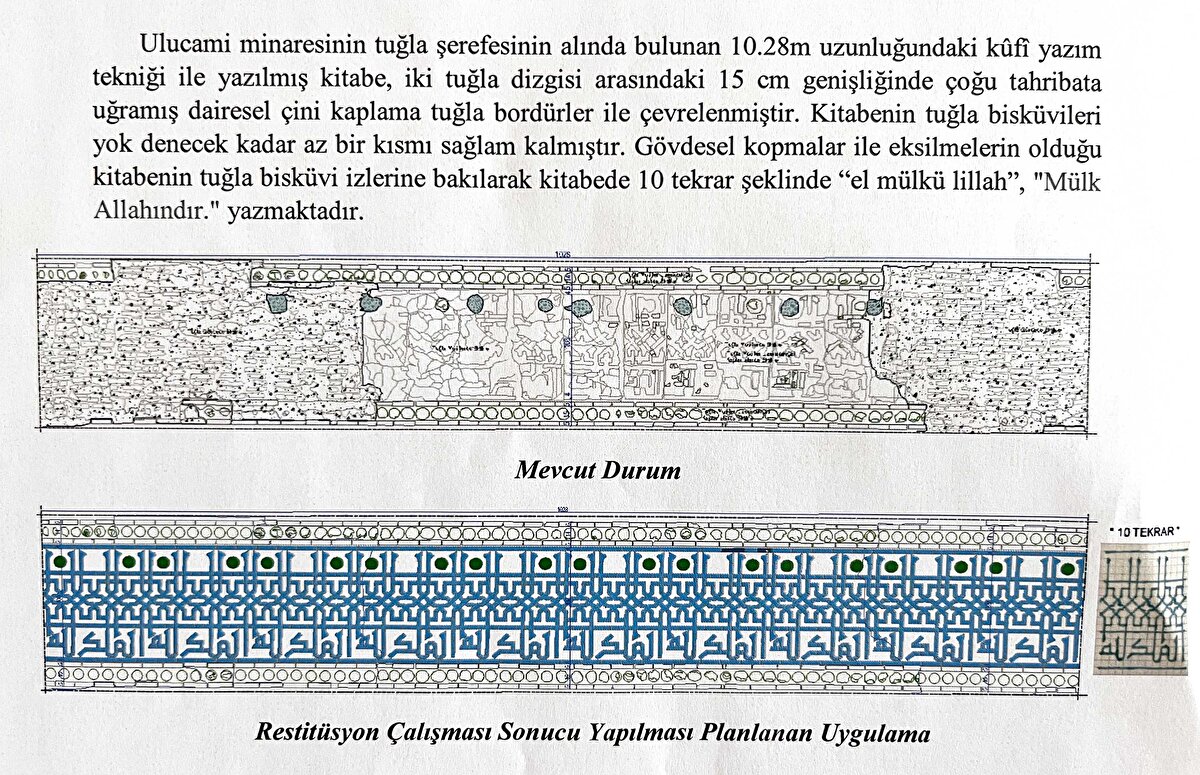 Ulucami minaresinin tuğla şerefesinin alında bulunan 10.28m uzunluğundaki kûfî yazım
tekniği ile yazılmış kitabe, iki tuğla dizgisi arasındaki 15 cm genişliğinde çoğu tahribata
uğramış dairesel çini kaplama tuğla bordürler ile çevrelenmiştir. Kitabenin tuğla bisküvileri
yok denecek kadar az bir kısmı sağlam kalmıştır. Gövdesel kopmalar ile eksilmelerin olduğu
kitabenin tuğla bisküvi izlerine bakılarak kitabede 10 tekrar şeklinde “el mülkü lillah”, "Mülk
Allahındır." yazmaktadır.
1028
Mevcut Durum
1028
" 10 TEKRAR"
Restitüsyon Çalışması Sonucu Yapılması Planlanan Uygulama